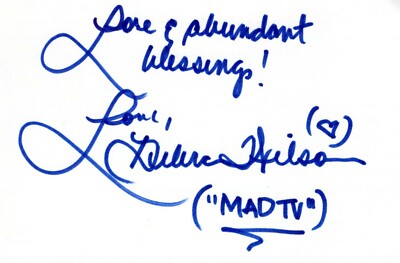 Love & abundant
blessings!
Love,
Debra Wilson
("MADTV")